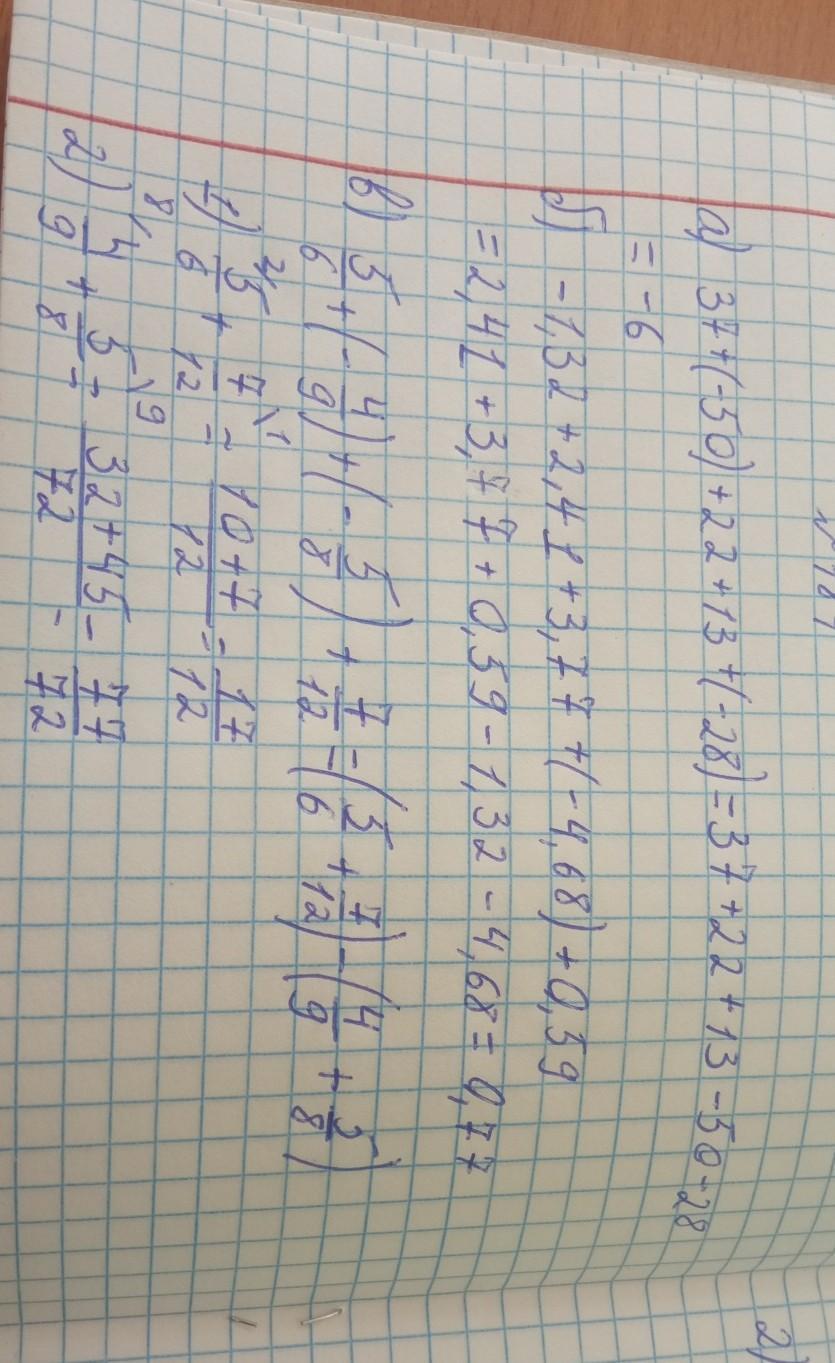 а) 37+(-50)+22+13+(-28)=37+22+13-50-28
= -6
б) -1,32+2,41+3,77+(-4,68)+0,59
= 2,41+3,77+0,59-1,32-4,68=0,77
в) 5/6+(-4/9)+(-5/8)+7/12=(5/6+7/12)-(4/9+5/8)
1) 5/6 \2 + 7/12 \1 = 10+7/12 = 17/12
2) 8/ 4/9 + 5/8 \9 = 32+45/72 = 77/72
2)